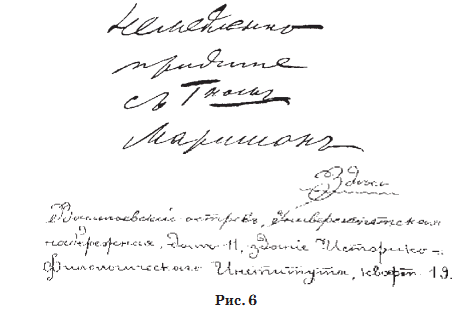 Немедленно
придите
съ
Васильевскій островъ, Университетская
набережная, домъ 11, зданіе Историко-
Филологическаго Института, кварт. 19.
Рис. 6